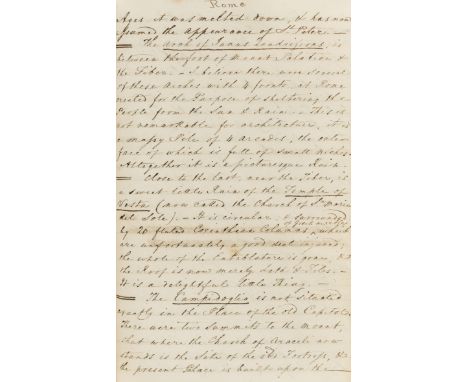 Rome
Ages it was melted down, & has now
assumed the appearance of St. Peter. —
The Arch of Janus Quadrifrons, is
between the foot of Mount Palatine &
the Tiber. — I believe there were several
of these Arches with 4 fronts, at Rome
erected for the Purpose of sheltering the
People from the Sun & Rain — This is
not remarkable for architecture, it is
a massy Pile of 4 arcades, the outer
face of which is full of small niches.
Altogether it is a picturesque Ruin. —
Close to the last, near the Tiber, is
a sweet little Ruin of the Temple of
Vesta (now called the Church of Sta. Maria
del Sole). — It is circular, & surrounded
by 20 fluted Corinthian Columns, which
are unfortunately a good deal injured;
the whole of the Entablature is gone, &
the Roof is now merely Lath & Tiles. —
It is a delightful little Thing. —
The Campidoglio is not situated
exactly in the Place of the old Capitol.
There were two Summits to the mount,
that where the Church of Aracoeli now
stands is the Site of the old Fortress, &
the present Palace is built upon the